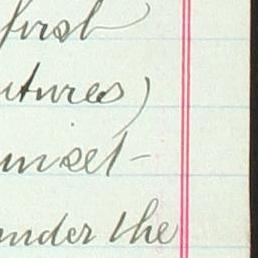 first
utures)
unset-
under the